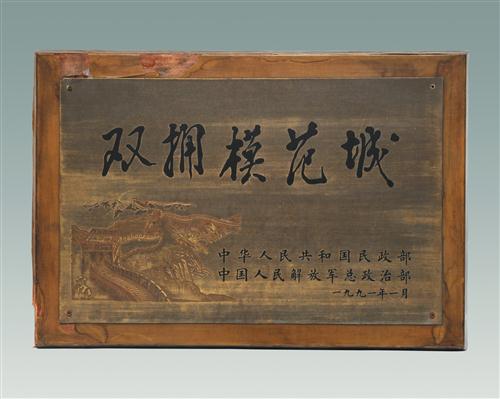 双拥模范城
中华人民共和国民政部
中国人民解放军总政治部
一九九一年一月